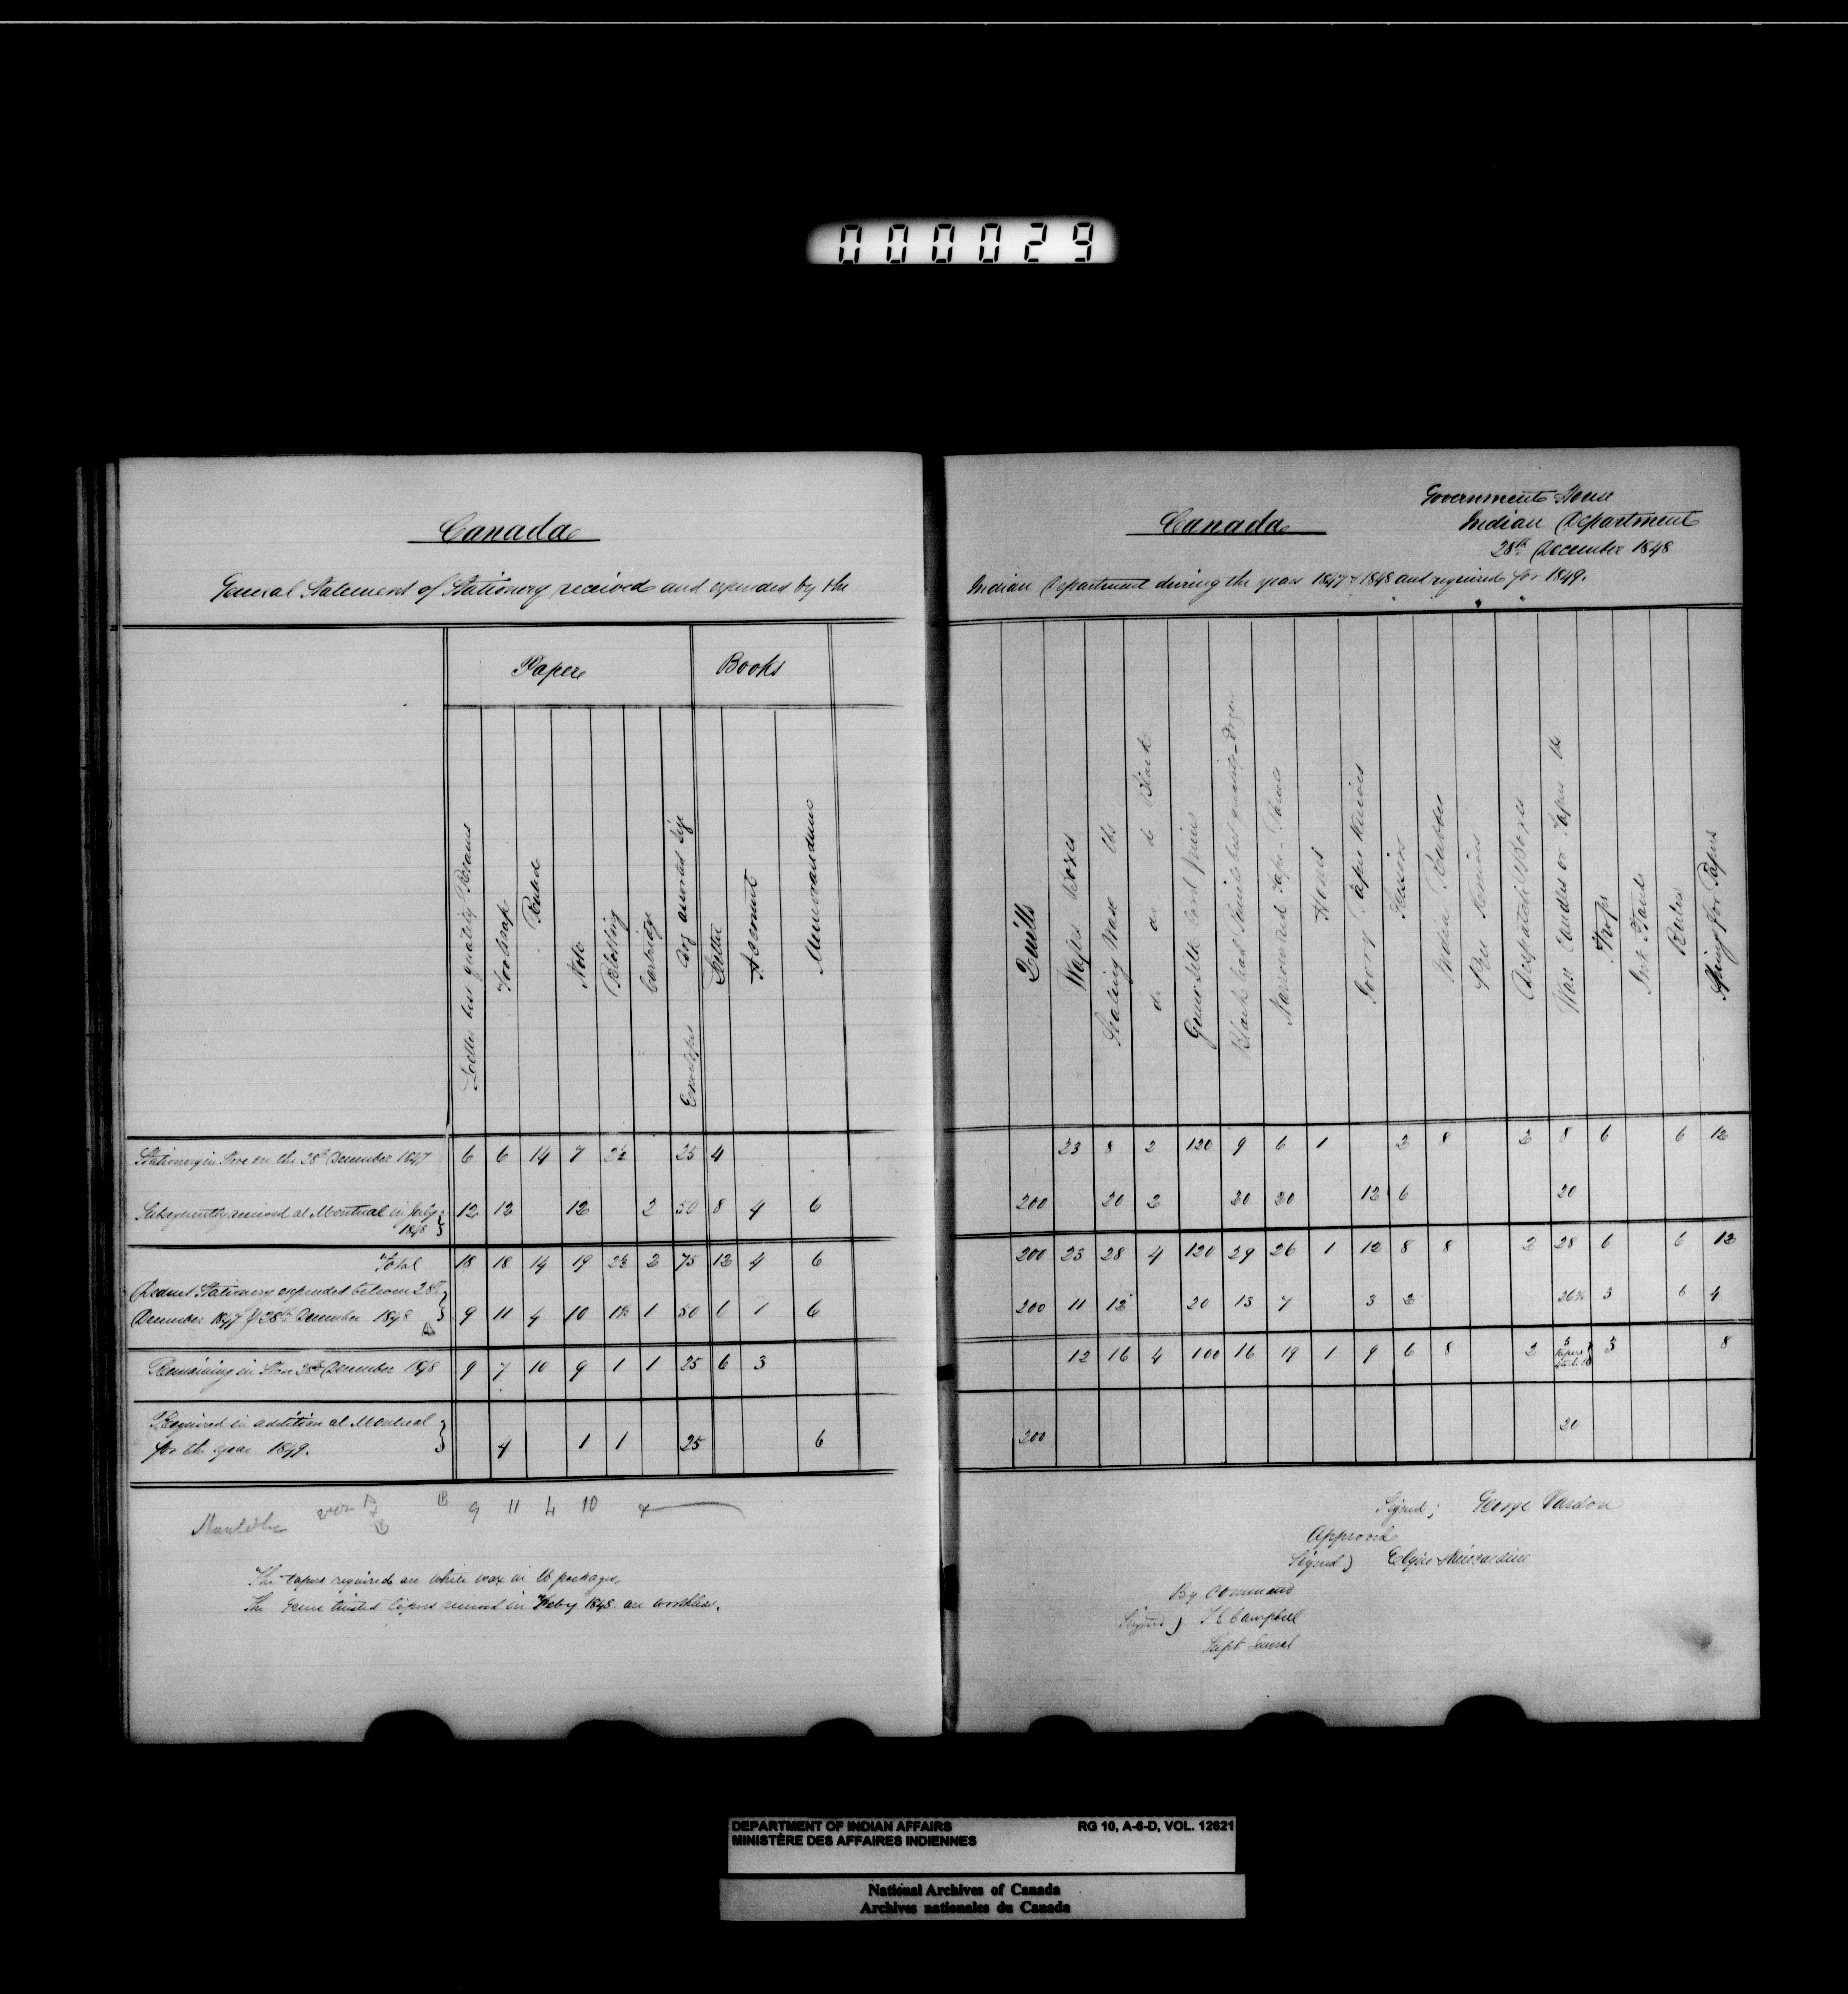 000029
Canada
General Statement of Stationery received and expended by the
Paper Books
Letter best quality Reams
Foolscap
Ruled
Note
Blotting
Cartridge
Envelopes assorted size
Letter
Account
Memorandum
Stationery in Store on the 28th December 1847 6 6 14 7 2½ 25 4
Subsequently received at Montreal in July 1848 12 12 12 2 50 8 4 6
Total 18 18 14 19 2½ 2 75 12 4 6
Deduct Stationery expended between 28th
December 1847 & 28th December 1848 9 11 4 10 1½ 1 50 6 1 6
Remaining in Store 28th December 1848 9 7 10 9 1 1 25 6 3
Required in addition at Montreal
for the year 1849. 4 1 1 25 6
B 9 11 4 10
The tapers required are white wax in lb packages.
The Green twisted tapers received in July 1848 are worthless.
Government House
Indian Department
28th December 1848
Canada
Indian Department during the years 1847 & 1848 and required for 1849.
Quills
Wafers Boxes
Sealing Wax lbs
do do do Black
Green Silk Cord
Black lead Pencils best quality - Dozen
Narrow red Tape
Hones
Ivory Paper Knives
Scissors
India Rubber
Pen Knives
Despatch Boxes
Wax Candles or Tapers lbs
Ink Stands
Rulers
String for Tapes
23 8 2 120 9 6 1 2 8 2 8 6 6 12
200 20 2 20 20 12 6 20
200 23 28 4 120 29 26 1 12 8 8 2 28 6 6 12
200 11 12 20 13 7 3 2 26½ 3 6 4
12 16 4 100 16 19 1 9 6 8 2 3 8
200 20
Signed; George Vardon
Approved
Signed) Elgin & Kincardine
By Command
Signed) T E Campbell
Supt General
DEPARTMENT OF INDIAN AFFAIRS RG 10, A-6-D, VOL. 12621
MINISTÈRE DES AFFAIRES INDIENNES
National Archives of Canada
Archives nationales du Canada